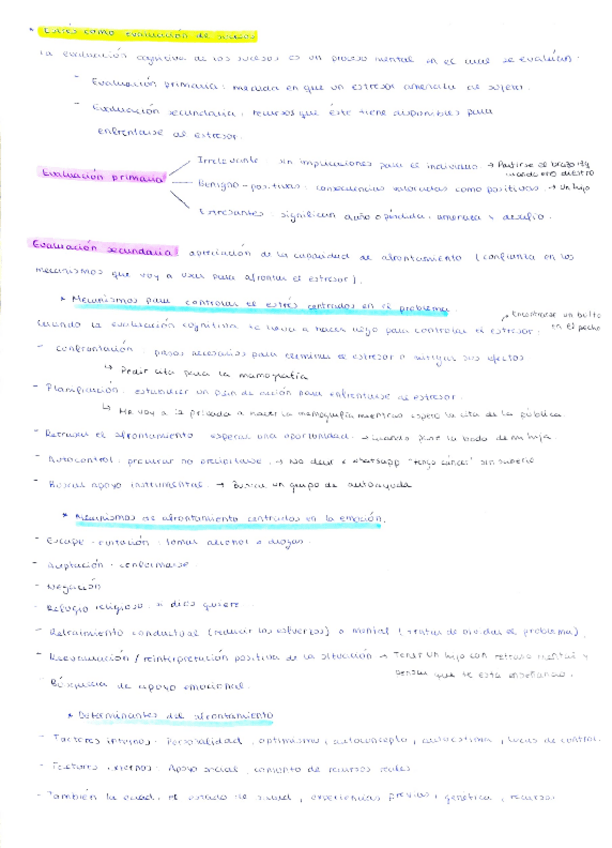 * Estrés como evaluación de sucesos
La evaluación cognitiva de los sucesos es un proceso mental en el cual se evalúan:
- Evaluación primaria: medida en que un estresor amenaza al sujeto.
- Evaluación secundaria: recursos que éste tiene disponibles para
enfrentarse al estresor.
Evaluación primaria
Irrelevante: sin implicaciones para el individuo → Partirse el brazo izq
siendo diestro
Benigno-positivas: consecuencias valoradas como positivas → Un hijo
Estresantes: significan daño o pérdida, amenaza y desafío.
Evaluación secundaria: apreciación de la capacidad de afrontamiento (confianza en los
mecanismos que voy a usar para afrontar el estresor).
* Mecanismos para controlar el estrés centrados en el problema
Cuando la evaluación cognitiva te lleva a hacer algo para controlar el estresor.
Encontrarse un bulto
en el pecho
- Confrontación: pasos necesarios para eliminar el estresor o mitigar sus efectos
↳ Pedir cita para la mamografía
- Planificación: establecer un plan de acción para enfrentarse al estresor.
↳ Me voy a la privada a hacer la mamografía mientras espero la cita de la pública.
- Retrasar el afrontamiento: esperar una oportunidad. → Cuando pase la boda de mi hija
- Autocontrol: procurar no precipitarse. → No decir x whatsapp "tengo cáncer" sin saberlo
- Buscar apoyo instrumental. → Buscar un grupo de autoayuda
* Mecanismos de afrontamiento centrados en la emoción.
- Escape-evitación: tomar alcohol o drogas.
- Aceptación: conformarse.
- Negación
- Refugio religioso: dios quiere.
- Retraimiento conductual (reducir los esfuerzos) o mental (tratar de olvidar el problema).
- Reevaluación/reinterpretación positiva de la situación → Tener un hijo con retraso mental y
pensar que te está enseñando.
- Búsqueda de apoyo emocional.
* Determinantes del afrontamiento
- Factores internos: Personalidad, optimismo, autoconcepto, autoestima, locus de control.
- Factores externos: Apoyo social, conjunto de recursos reales
- También la edad, el estado de salud, experiencias previas, genética, recursos.